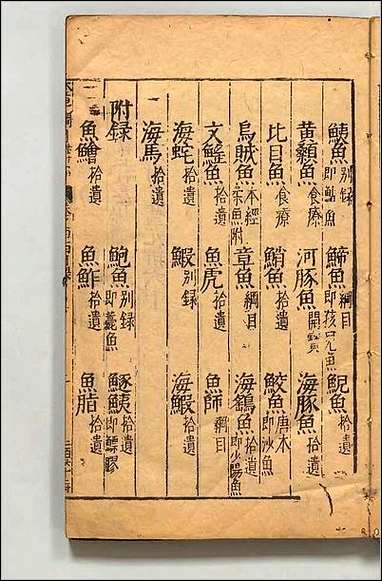 鮧魚 別録 即鮎魚 䱱魚 綱目 即孩兒魚 鯢魚 拾遺
黄顙魚 食療 河豚魚 開寳 海豚魚 拾遺
比目魚 食療 鮹魚 拾遺 鮫魚 唐本 即沙魚
烏賊魚 本經 柔魚附 章魚 綱目 海鷂魚 拾遺 即少陽魚
文鰩魚 拾遺 魚虎 拾遺 魚師 綱目
海蛇 拾遺 鰕 別録 海鰕 拾遺
海馬 拾遺
附録 鮑魚 別録 即薧魚 鱁鮧 拾遺 即鰾膠
魚鱠 拾遺 魚鮓 拾遺 魚脂 拾遺